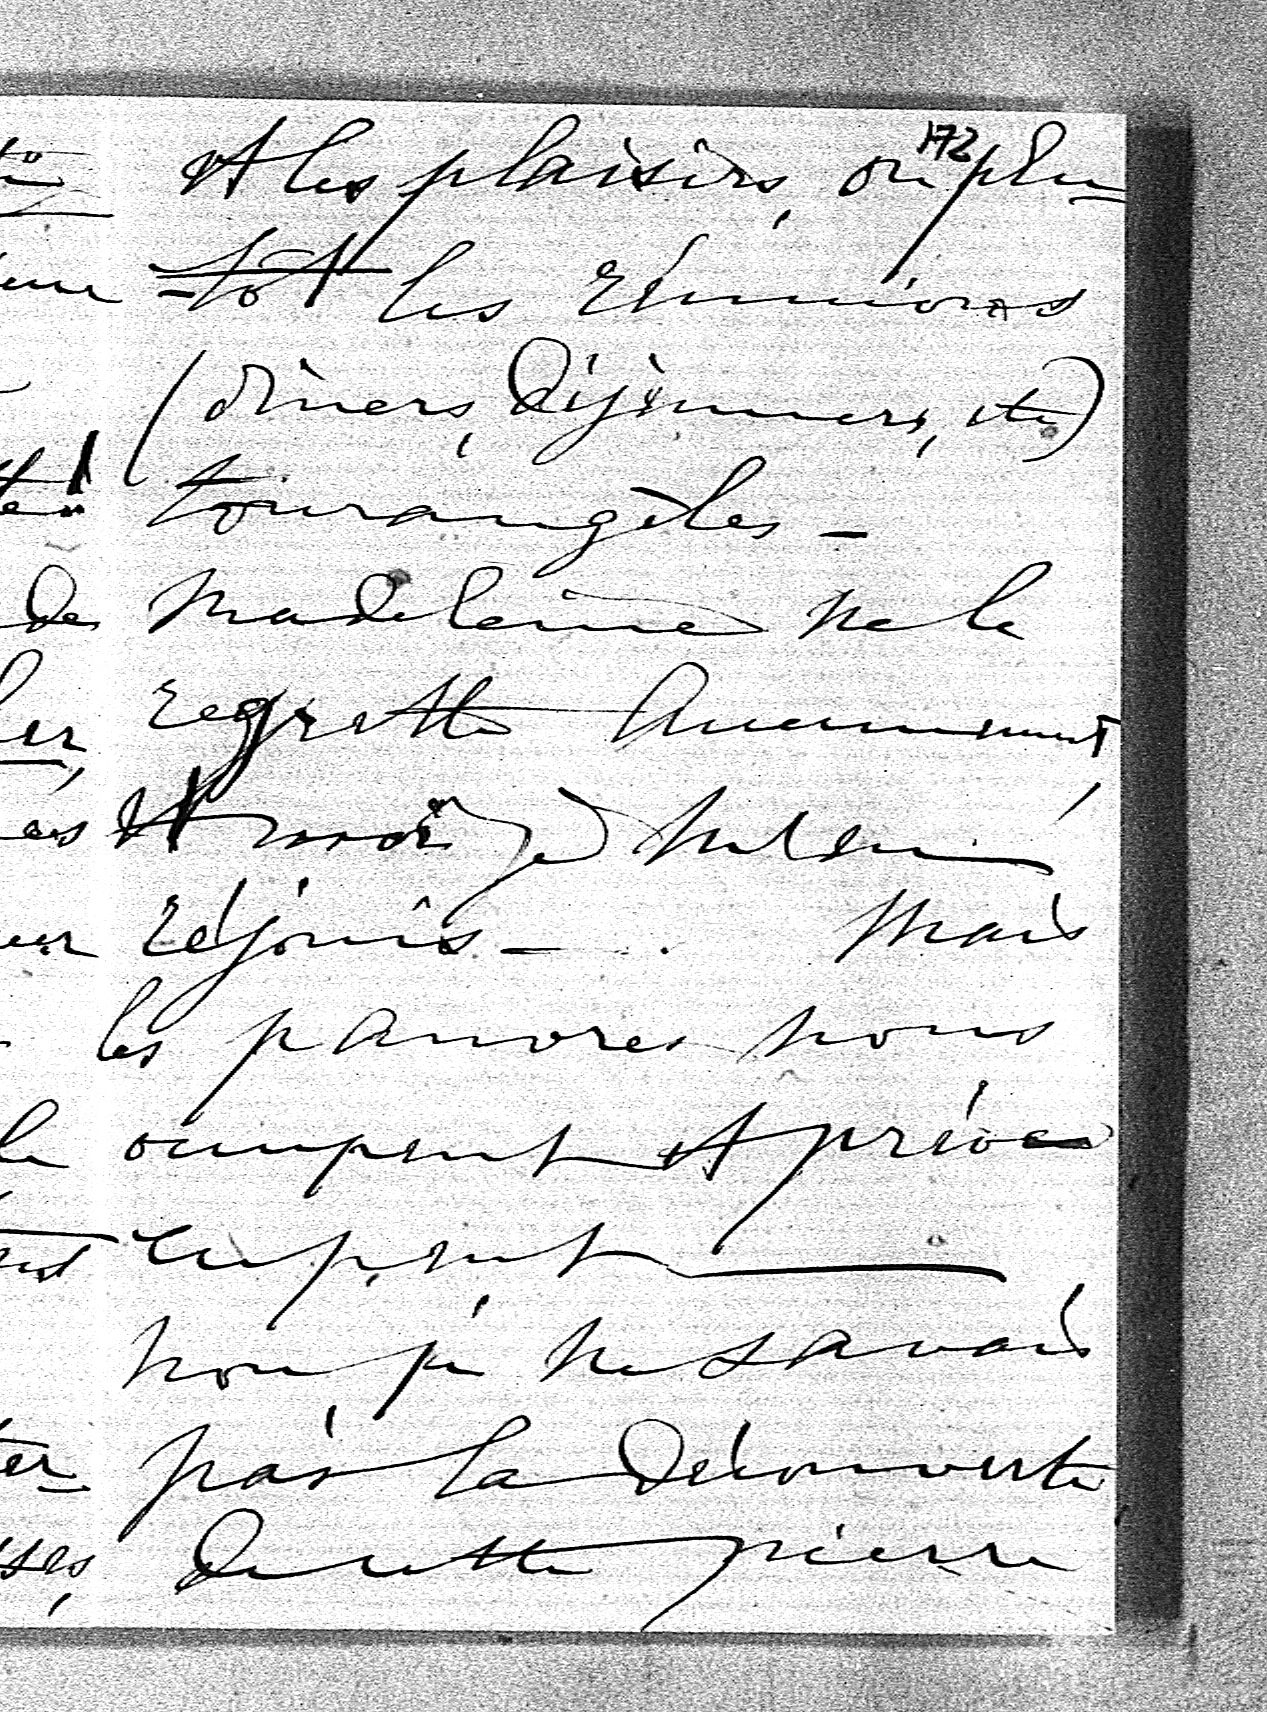 172
et les plaisirs, ou plu-
-tôt les réunions
(dîners, déjeuners, etc)
tourangeles -
Madeleine ne le
regrette aucunement,
et moi je m'en
réjouis - . Mais
les pauvres nous
occupent et préoc-
cupent
non je ne savais
pas la découverte
de cette pierre